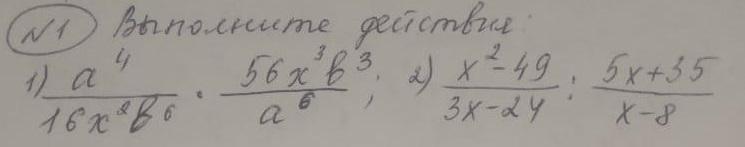 №1 Выполните действия:
1) a⁴/(16x²b⁶) · 56x³b³/a⁶; 2) (x²-49)/(3x-24) : (5x+35)/(x-8)